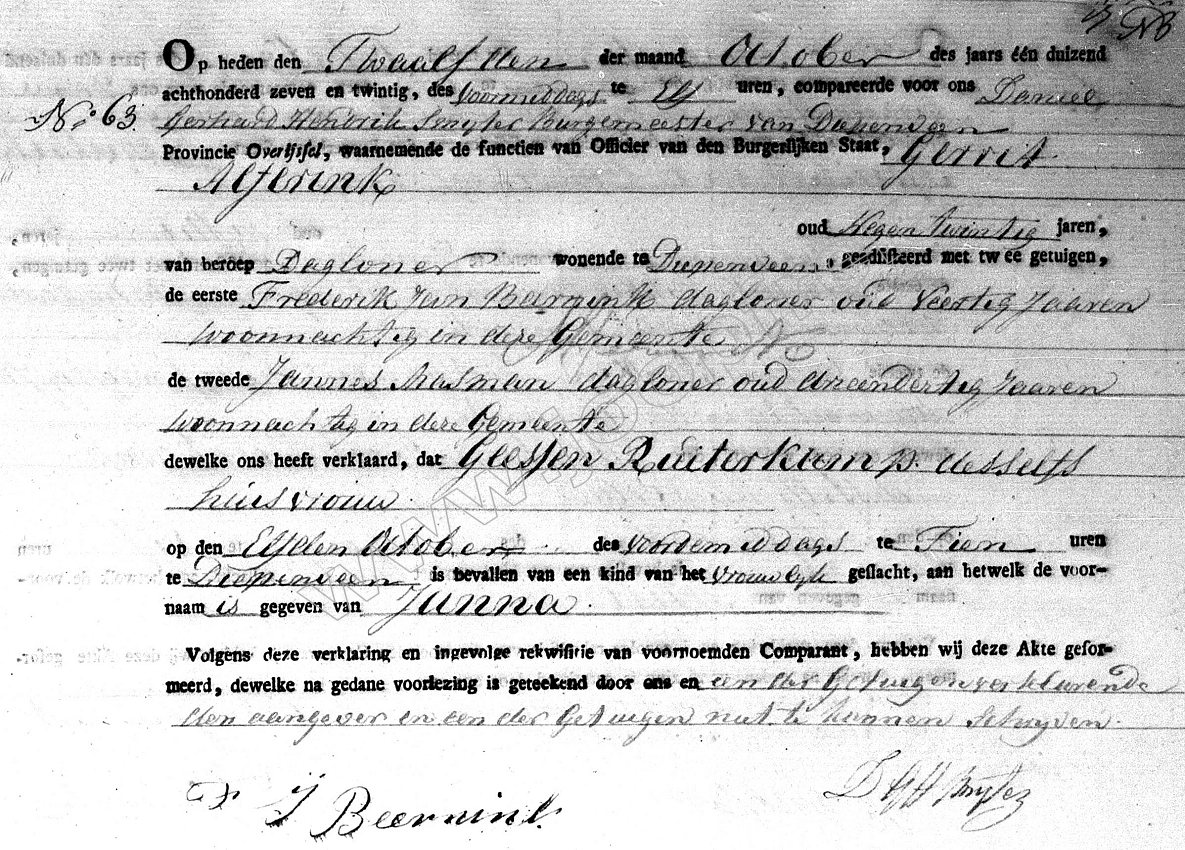 Op heden den Twaalfden der maand October des jaars één duizend
achthonderd zeven en twintig, des voormiddags te Elf uren, compareerde voor ons Daniel
No 63. Gerhard Hendrik Smyter Burgemeester van Diepenveen
Provincie Overijssel, waarnemende de functien van Officier van den Burgerlijken Staat, Gerrit
Alferink
oud Negen twintig jaren,
van beroep Dagloner wonende te Diepenveen, geadsisteerd met twee getuigen,
de eerste Frederik Jan Barnink dagloner oud Veertig Jaaren
woonnachtig in deze Gemeente
de tweede Jannes Masman dagloner oud drieendertig Jaaren
woonnachtig in deze Gemeente
dewelke ons heeft verklaard, dat Geesjen Ruiterkamp. desselfs
huisvrouw
op den Elfden October des voordemiddags te Tien uren
te Diepenveen is bevallen van een kind van het vrouwlyk geslacht, aan hetwelk de voor-
naam is gegeven van Janna.
Volgens deze verklaring en ingevolge rekwisitie van voornoemden Comparant, hebben wij deze Akte gefor-
meerd, dewelke na gedane voorlezing is geteekend door ons en een der Getuigen verklarende
den aangever en een der Getuigen niet te kunnen Schryven.
J Beernink
D G H Smyter